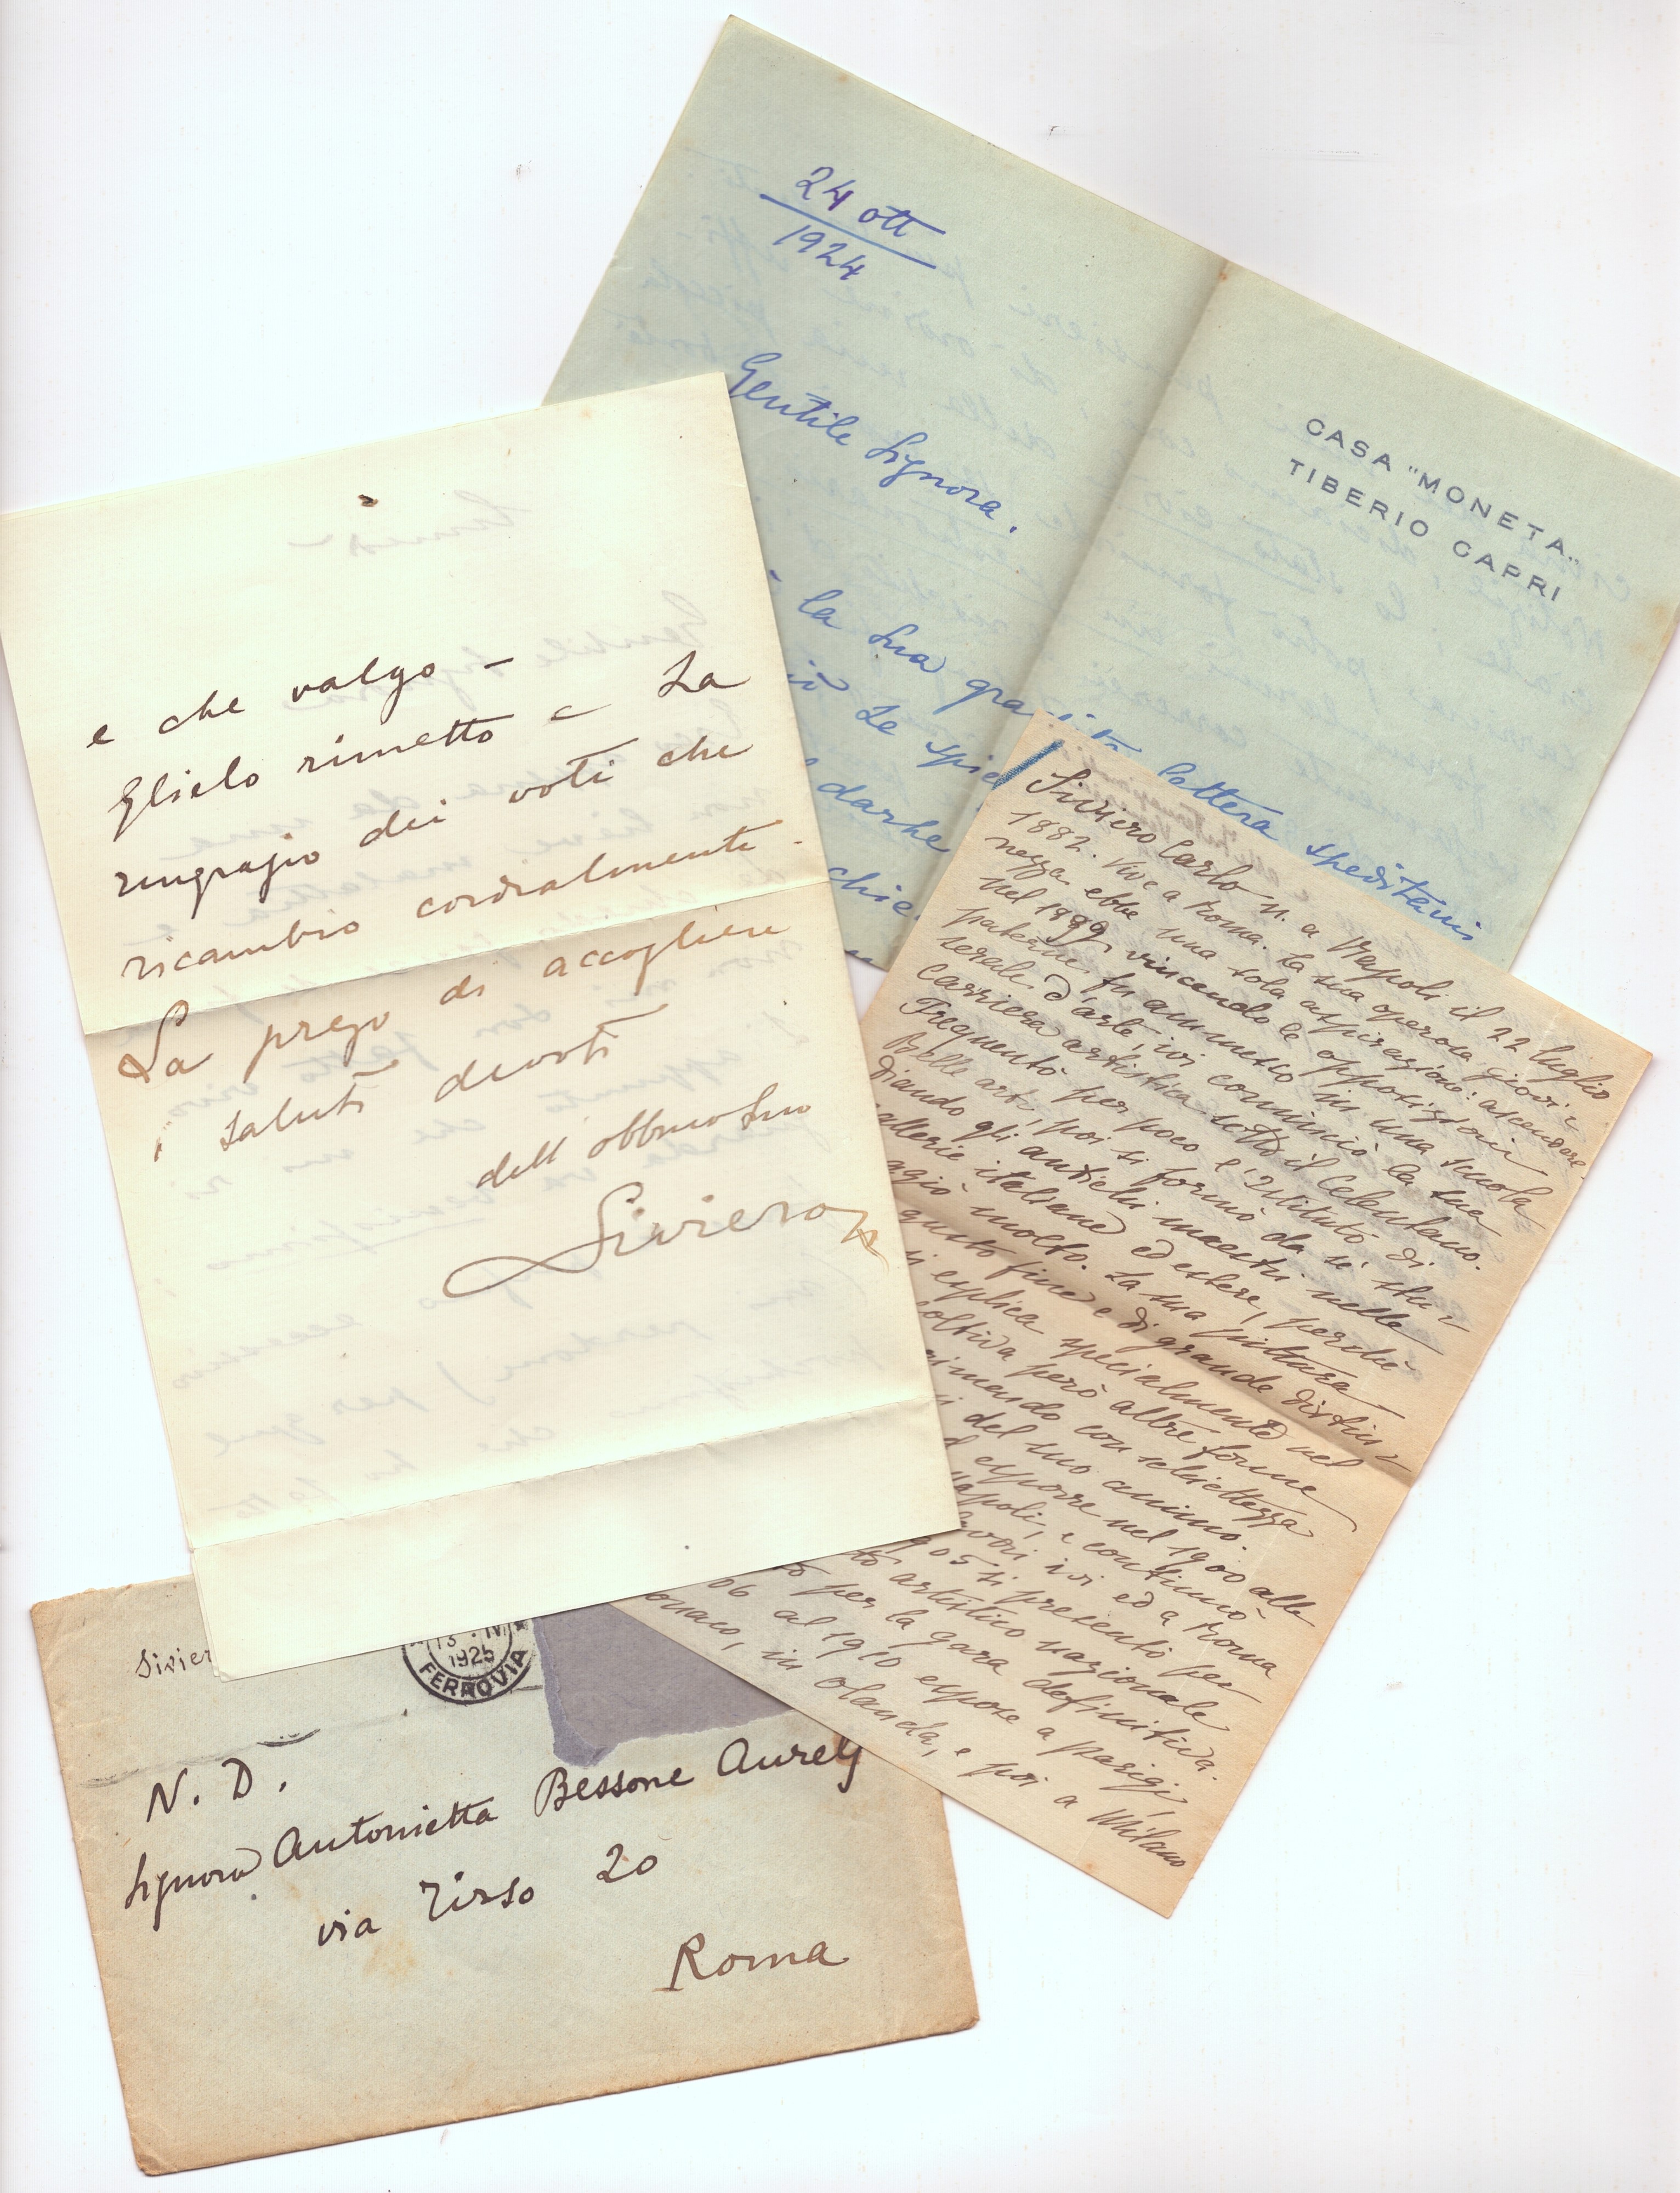 24 ott
1924
Gentile Signora.
la Sua gra lettera speditami
Le spie
darle
chie
CASA "MONETA"
TIBERIO CAPRI
e che valgo –
Glielo rimetto e La
ringrazio dei voti che
ricambio cordialmente.
La prego di accogliere
i saluti devoti
dell' obbmo Suo
Siviero
Siviero Carlo n. a Napoli il 22 luglio
1882. Vive a Roma. La sua operosa giovi-
nezza ebbe una sola aspirazione: ascendere.
nel 1899, vincendo le opposizioni
paterne, fu ammesso in una scuola
serale d'arte, ivi cominciò la sua
carriera artistica sotto il Celentano.
Frequentò per poco l'Istituto di
Belle arti, poi si formò da sè stu-
diando gli antichi maestri nelle
gallerie italiane ed estere, perchè
ggiò molto. La sua pittura
gusto fine e di grande distin-
si esplica specialmente nel
coltiva però altre forme
rimendo con schiettezza
del suo animo.
esporre nel 1900 alle
Napoli, e continuò
ivi ed a Roma
05 si presentò per
artistico nazionale
per la gara definitiva.
06 al 1910 espose a Parigi,
onaco, in Olanda, e poi a Milano
Sivier
13 . IV
1925
FERROVIA
N. D.
Signora Antonietta Bessone Aurelj
via Tirso 20
Roma